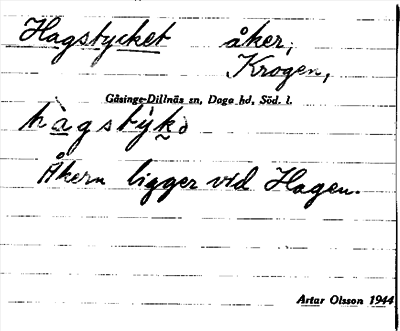 Hagstycket åker,
Krogen,
Gåsinge-Dillnäs sn, Daga hd, Söd. l.
Åkern ligger vid Hagen.
Artur Olsson 1944